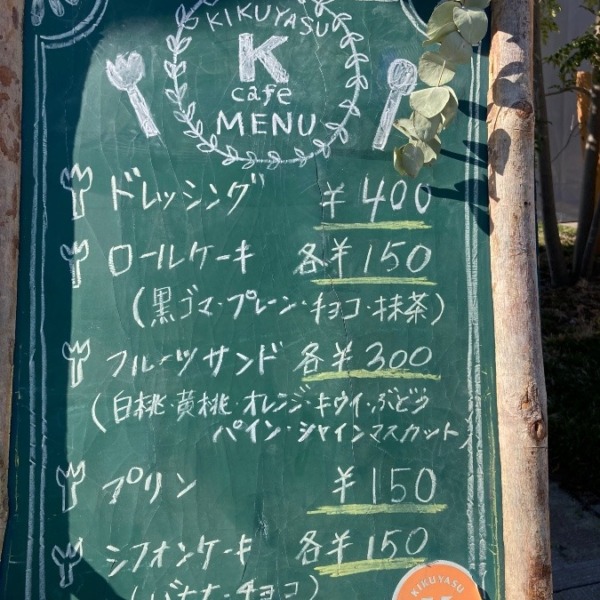 KIKUYASU
K
cafe
MENU
ドレッシング ¥400
ロールケーキ 各¥150
(黒ゴマ・プレーン・チョコ・抹茶)
フルーツサンド 各¥300
(白桃・黄桃・オレンジ・キウイ・ぶどう
パイン・シャインマスカット)
プリン ¥150
シフォンケーキ 各¥150
(バナナ・チョコ)
KIKUYASU